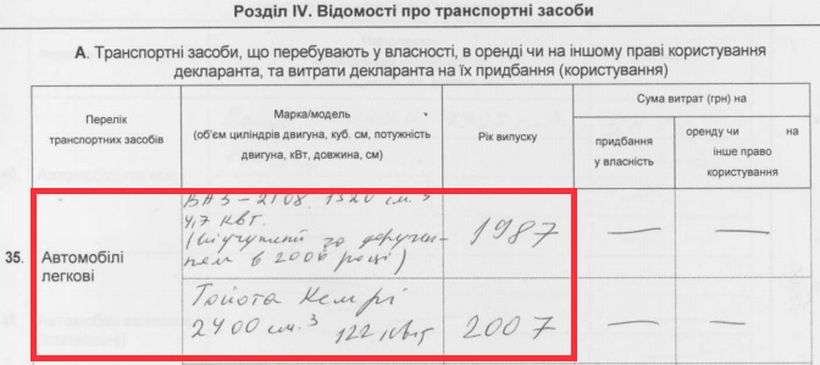 Розділ IV. Відомості про транспортні засоби
А. Транспортні засоби, що перебувають у власності, в оренді чи на іншому праві користування
декларанта, та витрати декларанта на їх придбання (користування)
Перелік
транспортних засобів
Марка/модель
(об'єм циліндрів двигуна, куб. см, потужність
двигуна, кВт, довжина, см)
Рік випуску
Сума витрат (грн) на
придбання
у власність
оренду чи на
інше право
користування
35.
Автомобілі
легкові
ВАЗ – 2108 1320 см.³
4,7 квт.
(відчужений за доручен-
ням в 2006 році)
1987
— —
Тойота Кемрі
2400 см.³ 122 квт
2007
— —